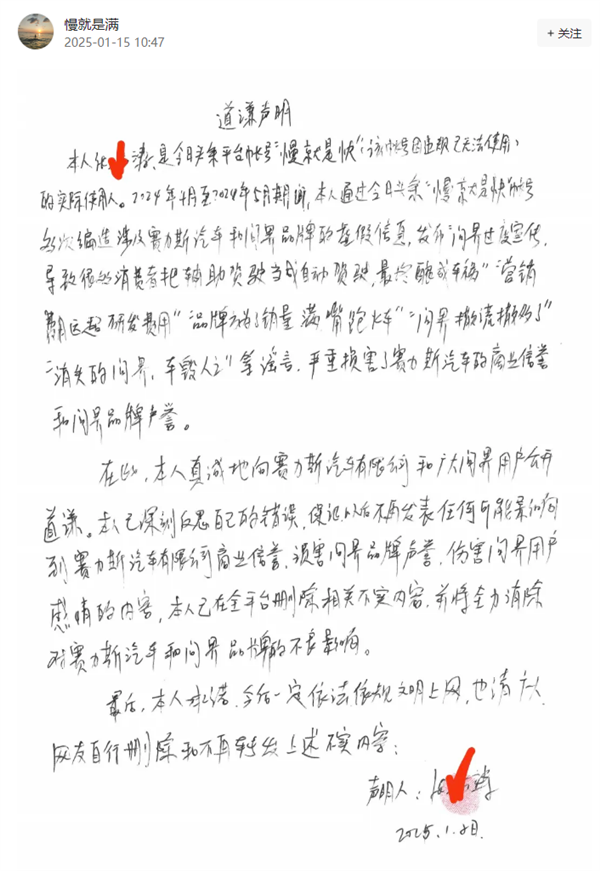 慢就是满
2025-01-15 10:47
+ 关注
道谦声明
本人 是今日头条平台帐号“慢就是快”(该帐号因违规已无法使用)
的实际使用人。2024年4月至2024年5月期间,本人通过今日头条“慢就是快”帐号
多次编造涉及赛力斯汽车和问界品牌的虚假信息,发布“问界过度宣传,
导致很多消费者把辅助驾驶当成自动驾驶,最终酿成车祸”“营销
费用远超研发费用”“品牌为了销量满嘴跑火车”“问界撤流撤多了”
“消失的问界,车毁人亡”等谣言,严重损害了赛力斯汽车的商业信誉
和问界品牌声誉。
在此,本人真诚地向赛力斯汽车有限公司和广大问界用户公开
道谦。本人已深刻反思自己的错误,保证以后不再发表任何可能影响
到赛力斯汽车有限公司商业信誉、损害问界品牌声誉、伤害问界用户
感情的内容,本人已在全平台删除相关不实内容,并将全力消除
对赛力斯汽车和问界品牌的不良影响。
最后,本人承诺,今后一定依法依规文明上网,也请广大
网友自行删除和不再转发上述不实内容;
声明人:
2025.1. 日